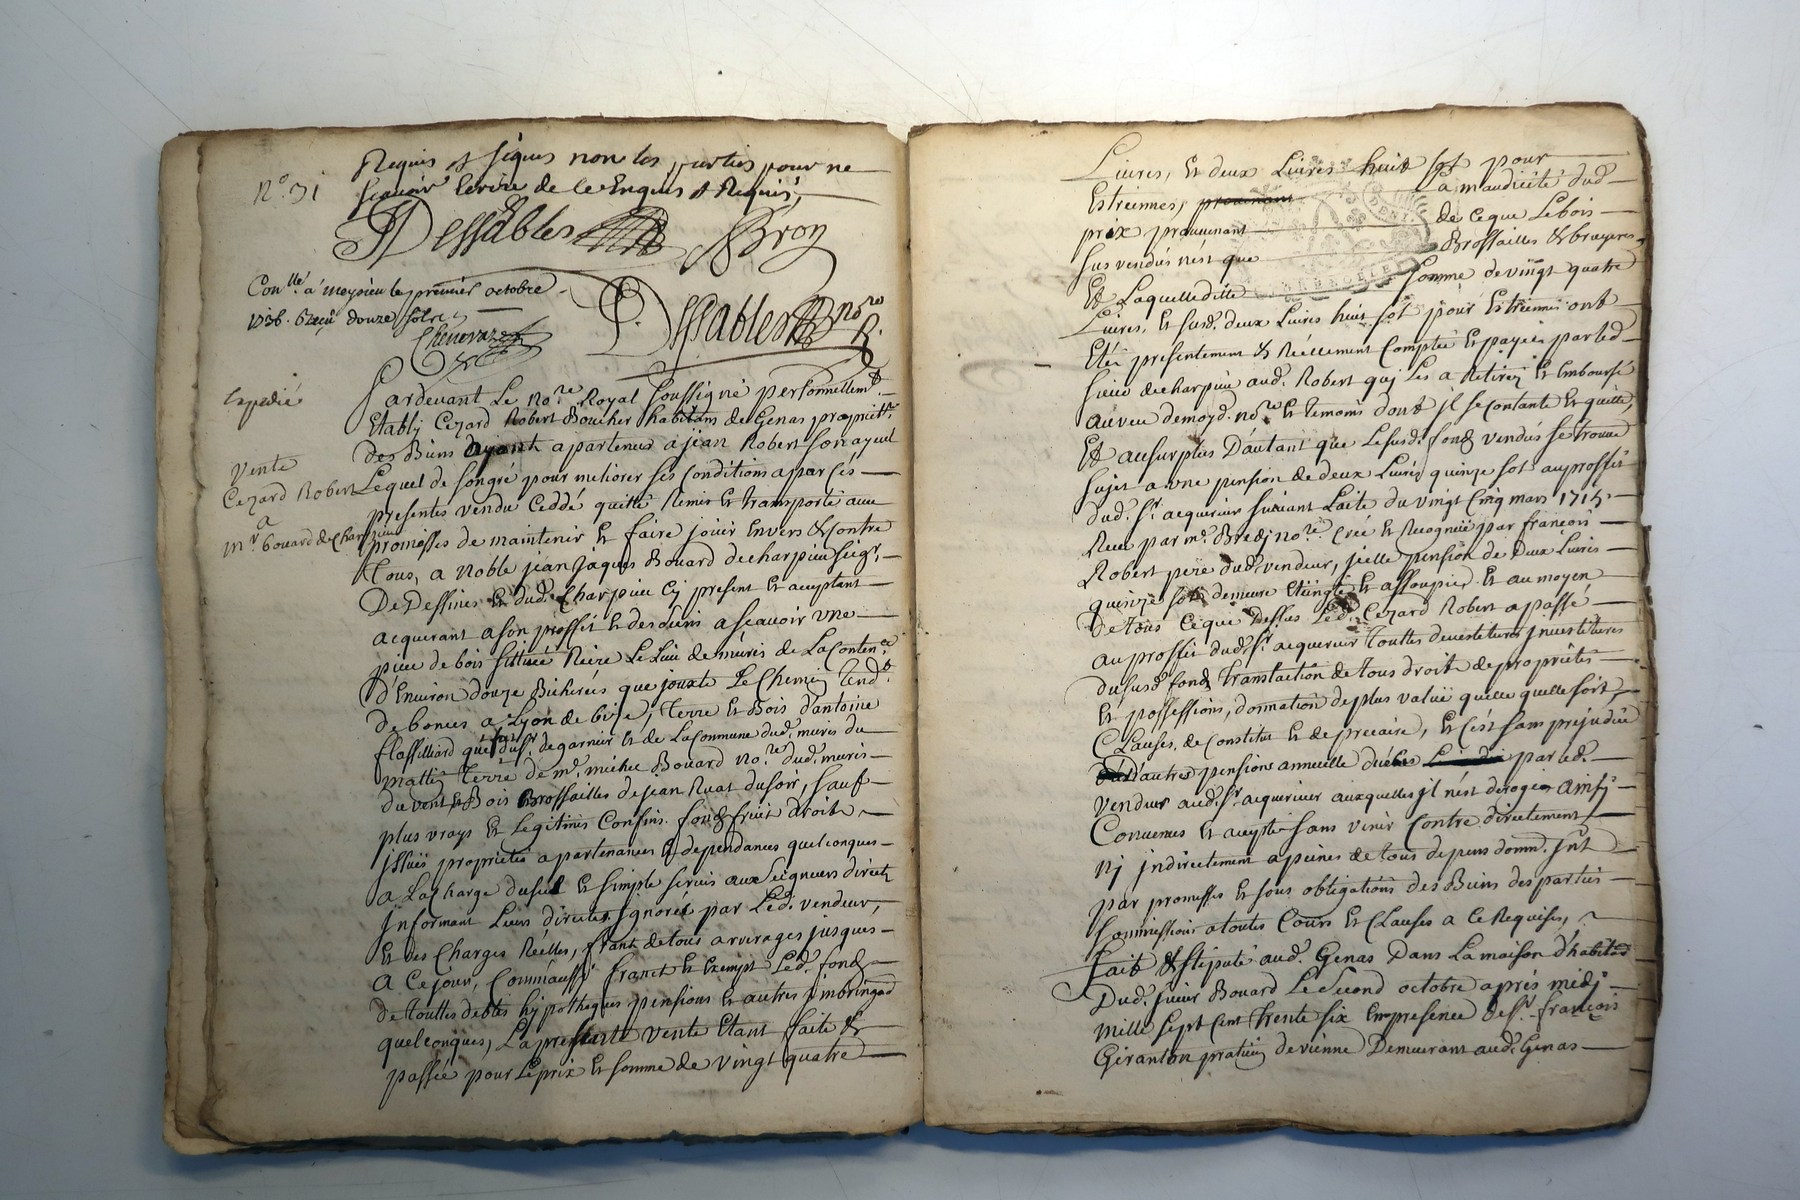 N° 31
Requis et signés non les parties pour ne
scavoir Ecrire de ce Enquis et Requis,
Dessables Bron
Con.llé a meysieu le premier octobre
1736. Reçu douze sols
Chenevaz
P. Dessables no.re R.
Expedié
Pardevant Le No.re Royal soussigné personnellem.t
Etably Cezard Robert Boucher habitans de Genas propriett.re
des Biens ayant apartenus a jean Robert son ayeul
Vente
Cezard Robert
a
m.r Bouard de Charpieu
Lequel de son gré pour meliorer ses Conditions a par ces
presentes vendu Ceddé quitté Remis et transporté avec
promesses de maintenir et faire jouir Envers et Contre
Tous, a Noble jean jaques Bouard de charpieu seig.r
De Dessines et dud. Charpieu Cy present et acceptant
acquerant a son proffit et des siens a scavoir une
piece de bois sittuée Riere Le Lieu de muris de La Conten.ce
d'Environ douze Bicherées que jouxte Le Chemin tend.t
de bonces a Lyon de bize, terre et Bois d'antoine
flassilliard que fut du s.r de garnier et de La Commune dud. muris du
mattin terre de m.e michel Bouard no.re dud. muris
du vent et Bois Brossailles de jean Ruat du soir, sauf
plus vrays et Legitimes Confins. fonds fruit droits
jssues proprietés apartenances et dependances quelconques
a La charge du seul et simple servis aux seigneurs directs
jnformant Leurs directes ignorés par Led. vendeur,
et des Charges Réelles, frant de tous arrerages jusques
a Ce jour, Comme aussy franct et Exempt Led. fond
de touttes debtes hypotheques pensions et autres jmbringad
quelconques, La presente vente Etant faite et
passée pour Le prix et somme de vingt quatre
Livres, et deux Livres huit sol pour
Estreennes, provenant La mandicité dud.
prix provenant de ce que Le bois
sus vendus n'est que Brossailles et bruyeres
Et Laquelle ditte somme de vingt quatre
Livres, et susd. deux Livres huit sol pour Estreennes ont
Eté presentement et Réellement Comptée et payées par led.
sieur de charpieu aud. Robert qui Les a Retirez et Emboursé
au veu de moyd. no.re et temoins dont jl se contante et quitte,
Et au surplus D'autant que Le susd. fond vendus se trouve
sujet a une pension de deux Livres quinze sol au proffit
dud. s.r acquereur suivant L'acte du vingt Cinq mars 1715
Receu par m.e Bredy no.re Créé et Recognüe par françois
Robert pere dud. vendeur, jcelle pension de Deux Livres
quinze sols demeure Eteingte et assoupie. Et au moyen
De tous Ce que Dessus Led. Cezard Robert a passé
au proffit dud. s.r acquereur touttes devestitures jnvestitures
du susd. fond translaction de tous droits de proprietés
et possessions, donnation de plus value quelle quelle soit,
Clauses, de Constitut et de precaire, et C'est sans prejudice
d'autres pensions annuelle düe par led.
vendeur aud. s.r acquereur auxquelles jl n'est derogé ainsy
Convenues et accepté sans venir Contre directement
ny jndirectement a peines de tous depens domm. jnt
par promesses et sous obligations des Biens des parties
soumissions a toutes Cours et Clauses a Ce Requises,
Fait et stipulé aud. Genas Dans La maison d'habitaõn
Dud. sieur Bouard Le second octobre aprés midy
mille sept Cent trente six En presence de s.r françois
Giranton praticien de vienne Demeurant aud. Genas